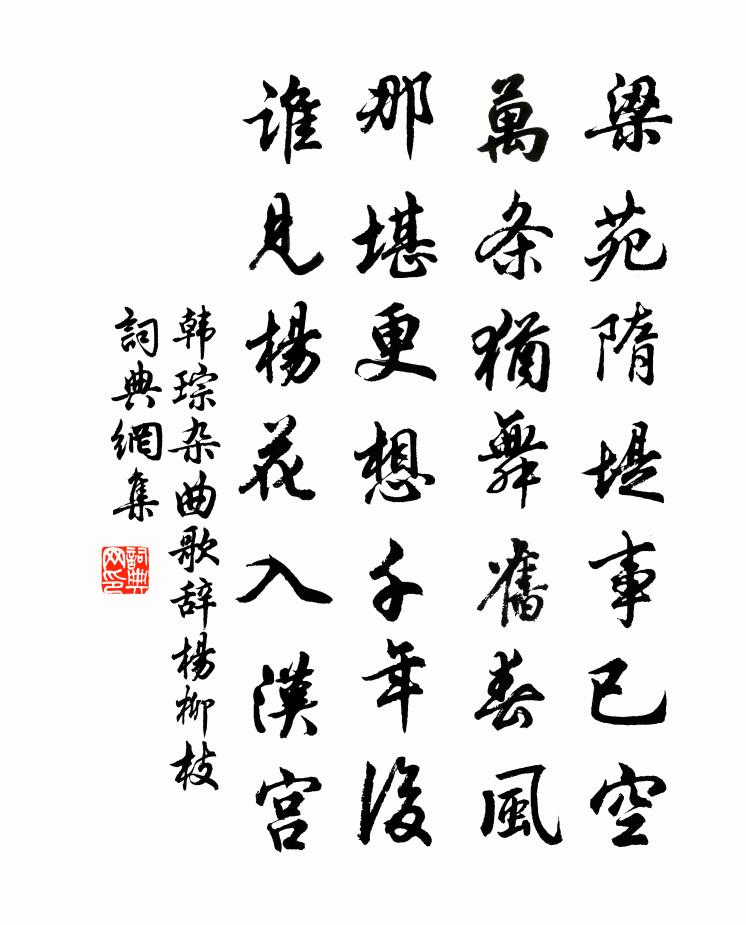 梁苑隋堤事已空
萬条猶舞舊春風
那堪更想千年後
誰見楊花入漢宮
韩琮杂曲歌辞楊柳枝
詞典網集
詞典网印